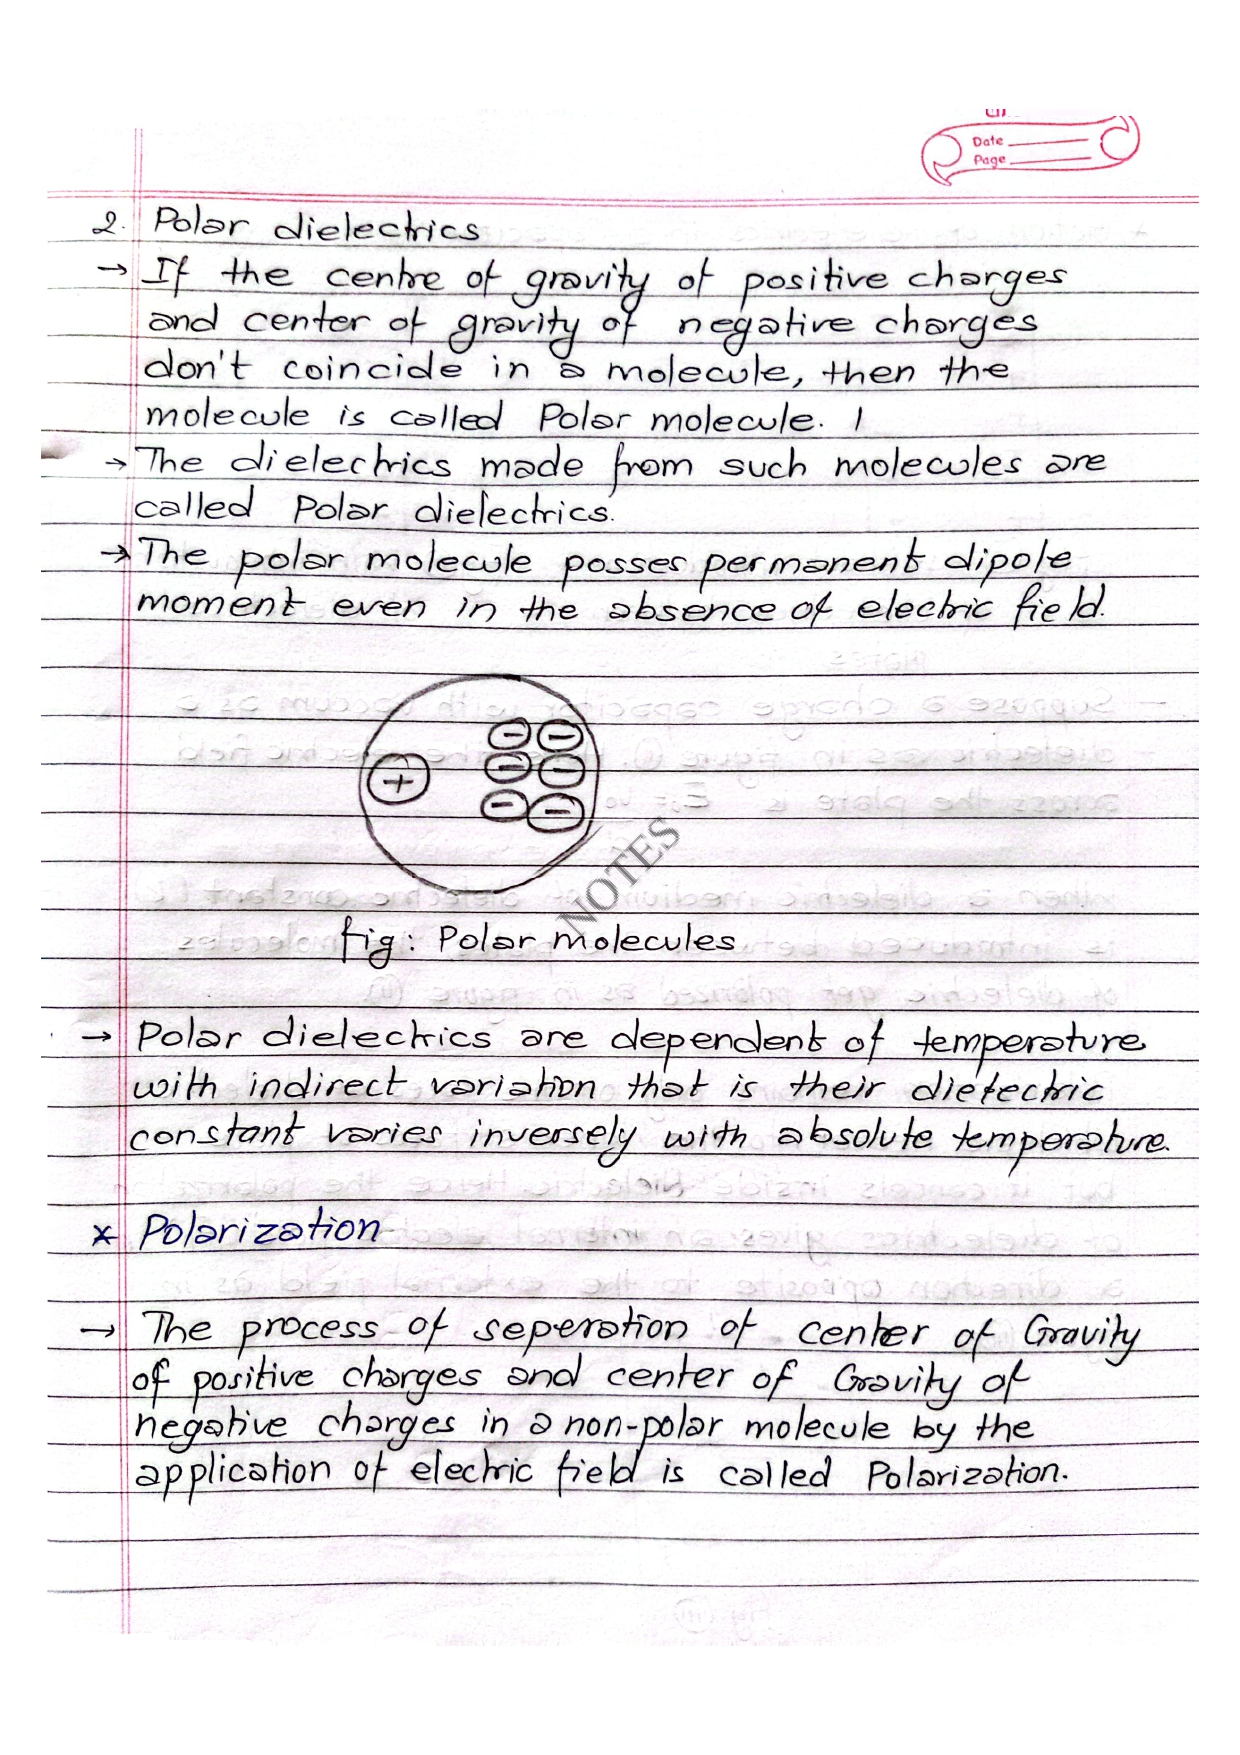 Date
Page
2. Polar dielectrics
→ If the centre of gravity of positive charges
and center of gravity of negative charges
don't coincide in a molecule, then the
molecule is called Polar molecule.
→ The dielectrics made from such molecules are
called Polar dielectrics.
→ The polar molecule posses permanent dipole
moment even in the absence of electric field.
− −
+ − −
− −
NOTES
fig: Polar molecules
→ Polar dielectrics are dependent of temperature
with indirect variation that is their dielectric
constant varies inversely with absolute temperature.
* Polarization
→ The process of seperation of center of Gravity
of positive charges and center of Gravity of
negative charges in a non-polar molecule by the
application of electric field is called Polarization.